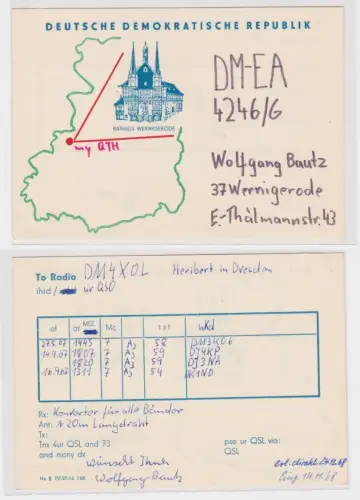 DEUTSCHE DEMOKRATISCHE REPUBLIK
RATHAUS WERNIGERODE
my QTH
DM-EA
4246/G
Wolfgang Bautz
37 Wernigerode
E.-Thälmannstr. 43
To Radio DM4XOL Heribert in Dresden
ihrd / ur QSO
of at MEZ Mc rst wkd
27.5.67 1445 7 A3 58
14.9.67 1807 7 A3 59 DJ4KP
1820 7 A3 59 DJ3NA
16.9.67 1311 7 A3 59
Rx: Konvertor für alle Bänder
Ant: A 20m Langdraht
Tx:
Tnx 4ur QSL and 73
and many dx
wünscht Ihnen
Wolfgang Bautz
pse ur QSL via:
QSL